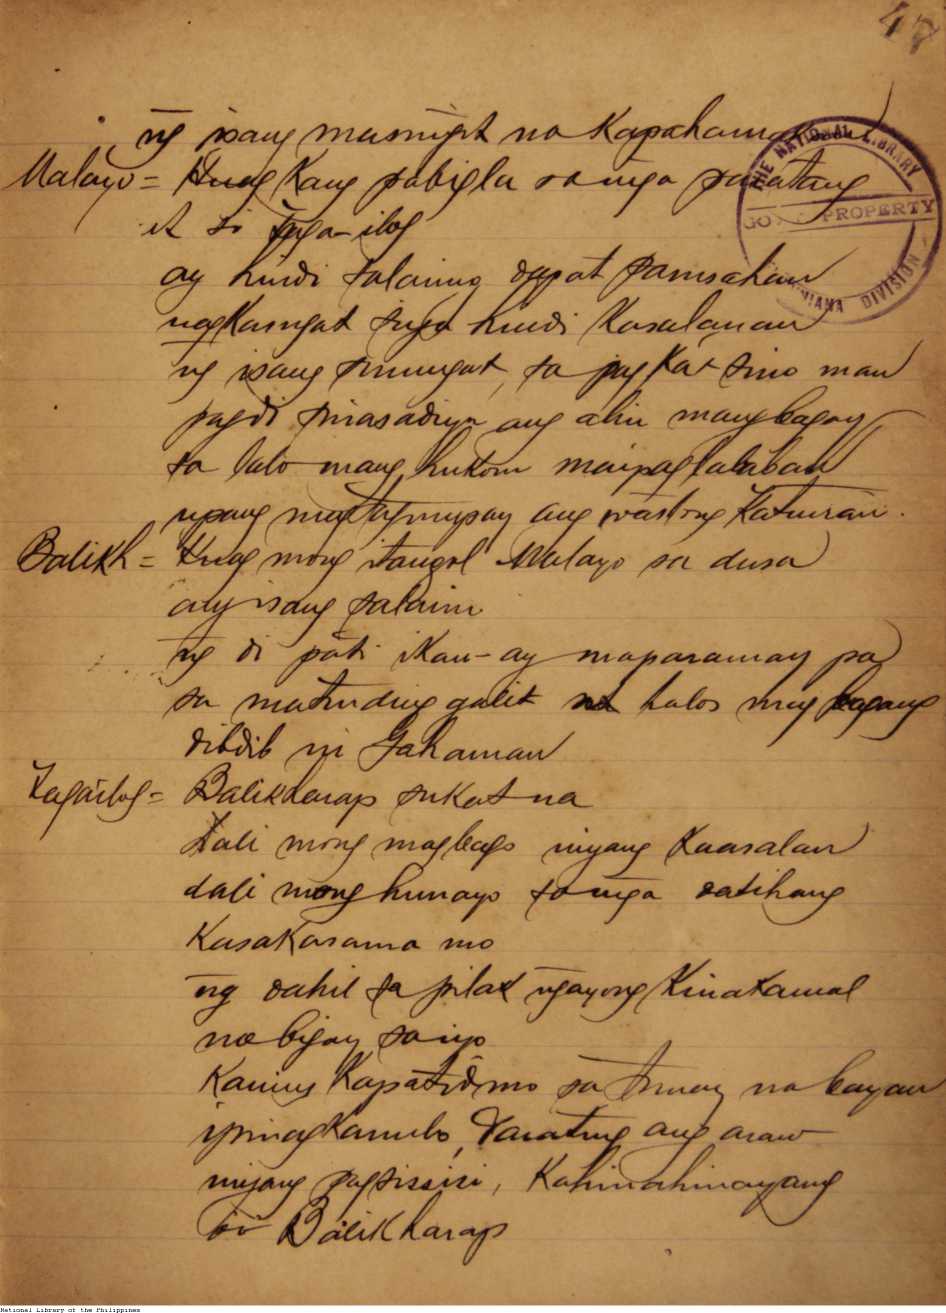 47
ng isang masungit na Kapahamakan
Malayo = Huag Kang pabigla sa mga paratang
at si Taga-ilog
ay hindi salaring dapat parusahan
nagkasugat siya hindi Kasalanan
ng isang sinugat, sa pagkat sino man
pag di sinasadiya ang alin mang bagay
sa lalo mang hukom maipaglalaban
upang magtagumpay ang wastong Katuiran.
Balikh = Huag mong itangol Malayo sa dusa
ang isang salarin
ng di pati ikau-ay maparamay pa
sa matinding galit na halos may bagang
dibdib ni Gahaman
Tagailog = Balikharap sukat na
dali mong magbago niyang Kaasalan
dali mong humayo sa mga datihang
Kasakasama mo
ng dahil sa pilak ngayong Kinakamal
na bigay sa iyo
Kaming Kapatid mo sa tunay na bayan
ipinagkanulo, Darating ang araw
niyang pagsisisi, Kahinahinayang
Balikharap
THE NATIONAL LIBRARY
GOV'T PROPERTY
DIVISION
National Library of the Philippines